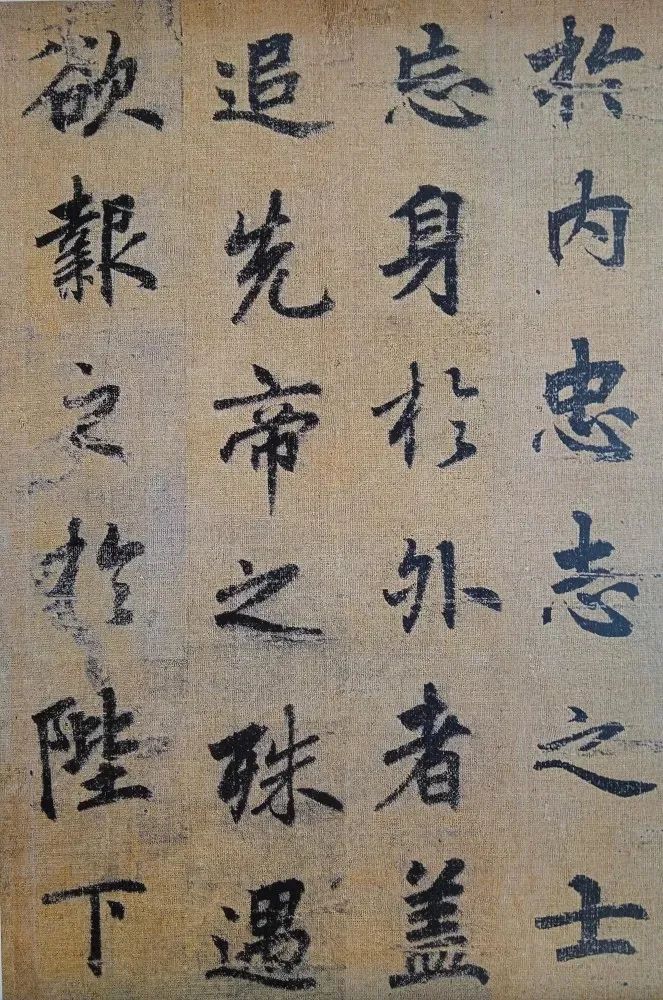 於内忠志之士
忘身於外者盖
追先帝之殊遇
欲報之於陛下